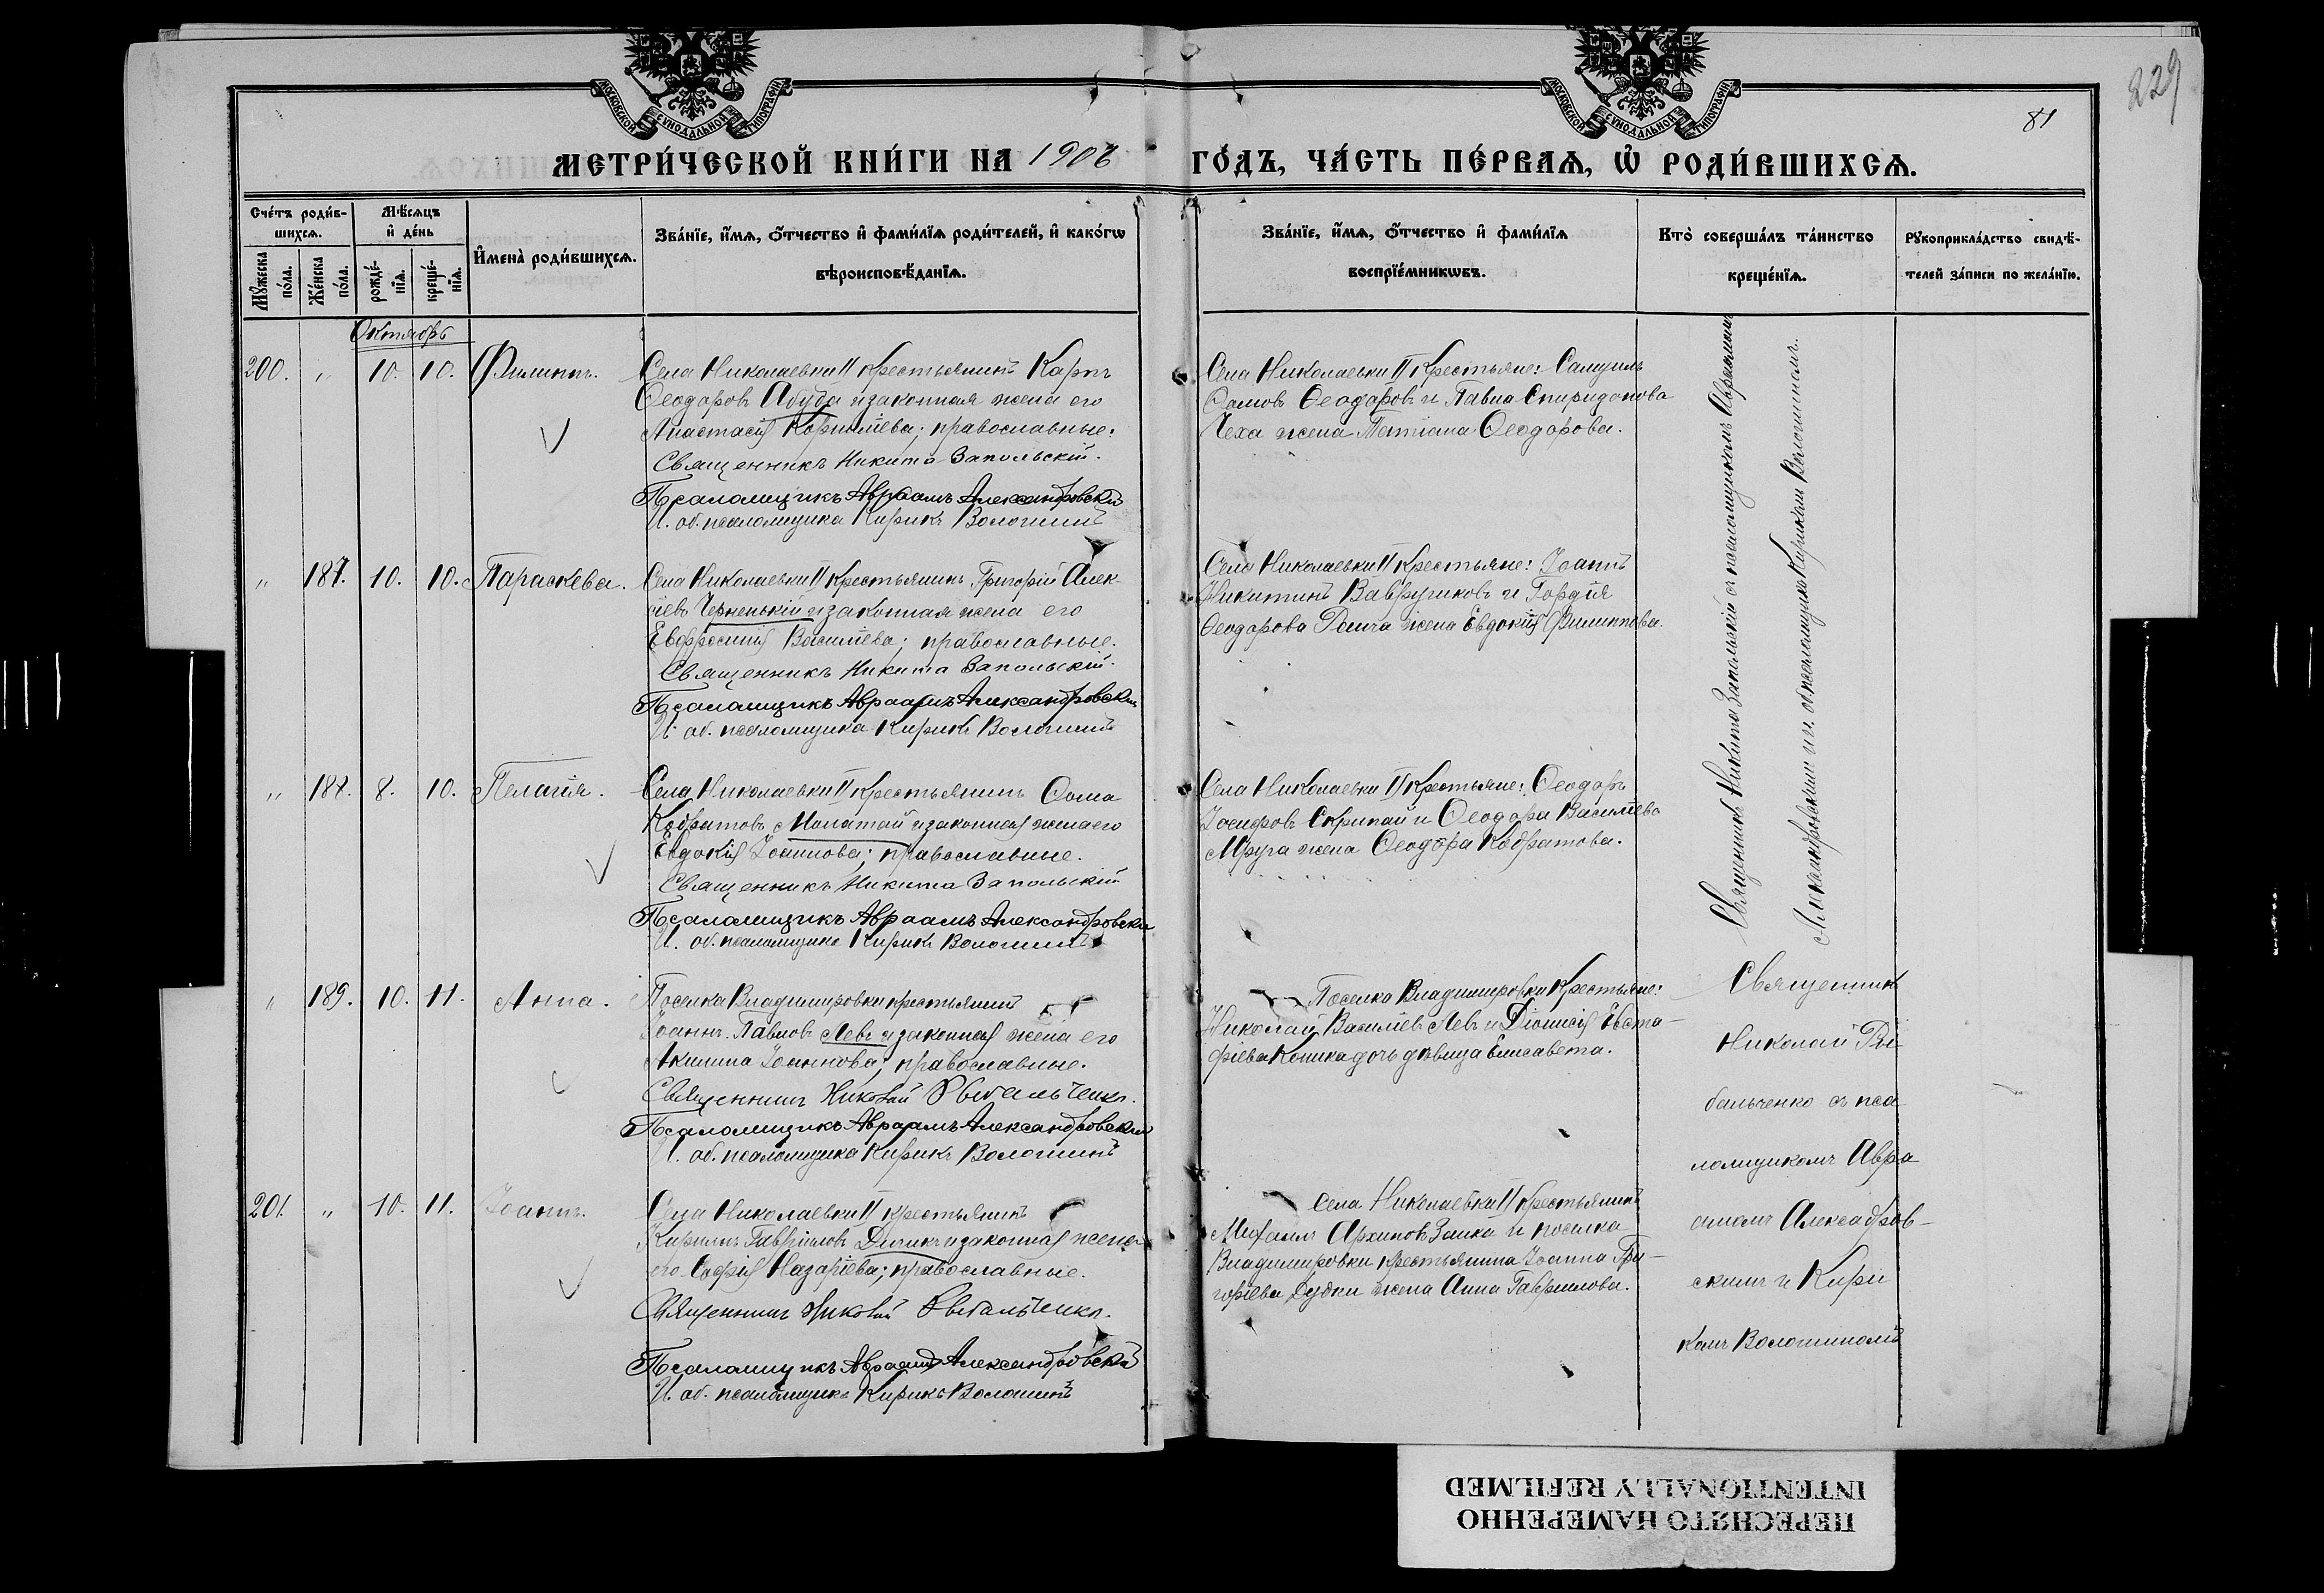 229
81
МОСКОВСКОЙ СѴНОДАЛЬНОЙ ТИПОГРАФІИ
МОСКОВСКОЙ СѴНОДАЛЬНОЙ ТИПОГРАФІИ
МЕТРИ́ЧЕСКОЙ КНИ́ГИ НА 1906 ГО́ДЪ, ЧА́СТЬ ПЕ́РВАѦ, Ѡ҆ РОДИ́ВШИХСѦ.
Сче́тъ роди́в-
шихсѧ.
Мꙋ́жеска по́ла.
Же́нска по́ла.
Мѣ́сѧцъ и҆ де́нь
рожде́-
нїѧ.
креще́-
нїѧ.
И҆мена̀ роди́вшихсѧ.
Зва́нїе, и҆́мѧ, ѻ҆́тчество и҆ фами́лїѧ роди́телей, и҆ како́гѡ
вѣроисповѣ́данїѧ.
Зва́нїе, и҆́мѧ, ѻ҆́тчество и҆ фами́лїѧ
воспрїе́мникѡвъ.
Кто̀ соверша́лъ та́инство
креще́нїѧ.
Рꙋкоприкла́дство свидѣ́-
телей за́писи по жела́нїю.
Октябрь
200. " 10. 10. Филиппъ.
Села Николаевки II крестьянинъ Карпъ
Ѳеодоровъ Абуда и законная жена его
Анастасія Корнилiева; православные:
Священникъ Никита Запольскій.
Псаломщикъ Авраамъ Александровскій
И. об. псаломщика Кирикъ Волошинъ
Села Николаевки II крестьяне: Самуилъ
Ѳомовъ Ѳеодоровъ и Павла Спиридонова
Чеха жена Татіана Ѳеодорова.
" 187. 10. 10. Параскева.
Села Николаевки II крестьянинъ Григорій Алек-
сіевъ Черненькій и законная жена его
Евфросинія Василіева; православные.
Священникъ Никита Запольскій.
Псаломщикъ Авраамъ Александровскій
И. об. псаломщика Кирикъ Волошинъ
Села Николаевки II крестьяне: Іоаннъ
Никитинъ Вавдугиковъ и Гордія
Ѳеодорова жена Евдокія Филиппова.
" 188. 8. 10. Пелагія.
Села Николаевки II крестьянинъ Ѳома
Кодратовъ Малатай и законная жена его
Евдокія Іоаннова; православные.
Священникъ Никита Запольскій
Псаломщикъ Авраамъ Александровскій
И. об. псаломщика Кирикъ Волошинъ
Села Николаевки II крестьяне: Ѳеодоръ
Іосифовъ Скрипай и Ѳеодора Василіева
Мруга жена Ѳеодора Кодратова.
Священникъ Никита Запольскій съ псаломщикомъ Авраамомъ
Александровскимъ и и. об. псаломщика Кирикомъ Волошиномъ.
" 189. 10. 11. Анна.
Поселка Владимировки крестьянинъ
Іоаннъ Павловъ Левъ и законная жена его
Акилина Іоаннова; православные.
Священникъ Николай Рыбальченко.
Псаломщикъ Авраамъ Александровскій
И. об. псаломщика Кирикъ Волошинъ
Поселка Владимировки крестьяне:
Николай Василіевъ Левъ и Діонисія Евста-
фіева Коника дочь дѣвица Елисавета.
Священникъ
Николай Ры
бальченко съ пса
ломщикомъ Авра
амомъ Алексадров-
скимъ и Кири
комъ Волошиномъ
201. " 10. 11. Іоаннъ.
Села Николаевки II крестьянинъ
Кириллъ Гавріиловъ Дичикъ и законная жена
его Софія Назаріева; православные.
Священникъ Николай Рыбальченко.
Псаломщикъ Авраамъ Александровскій
И. об. псаломщика Кирикъ Волошинъ
Села Николаевки II крестьянинъ
Михаилъ Архиповъ Заика и поселка
Владимировки крестьянина Іоанна Гри-
горіева Дудки жена Анна Гавриилова.
ПЕРЕСНЯТО НАМЕРЕННО
INTENTIONALLY REFILMED